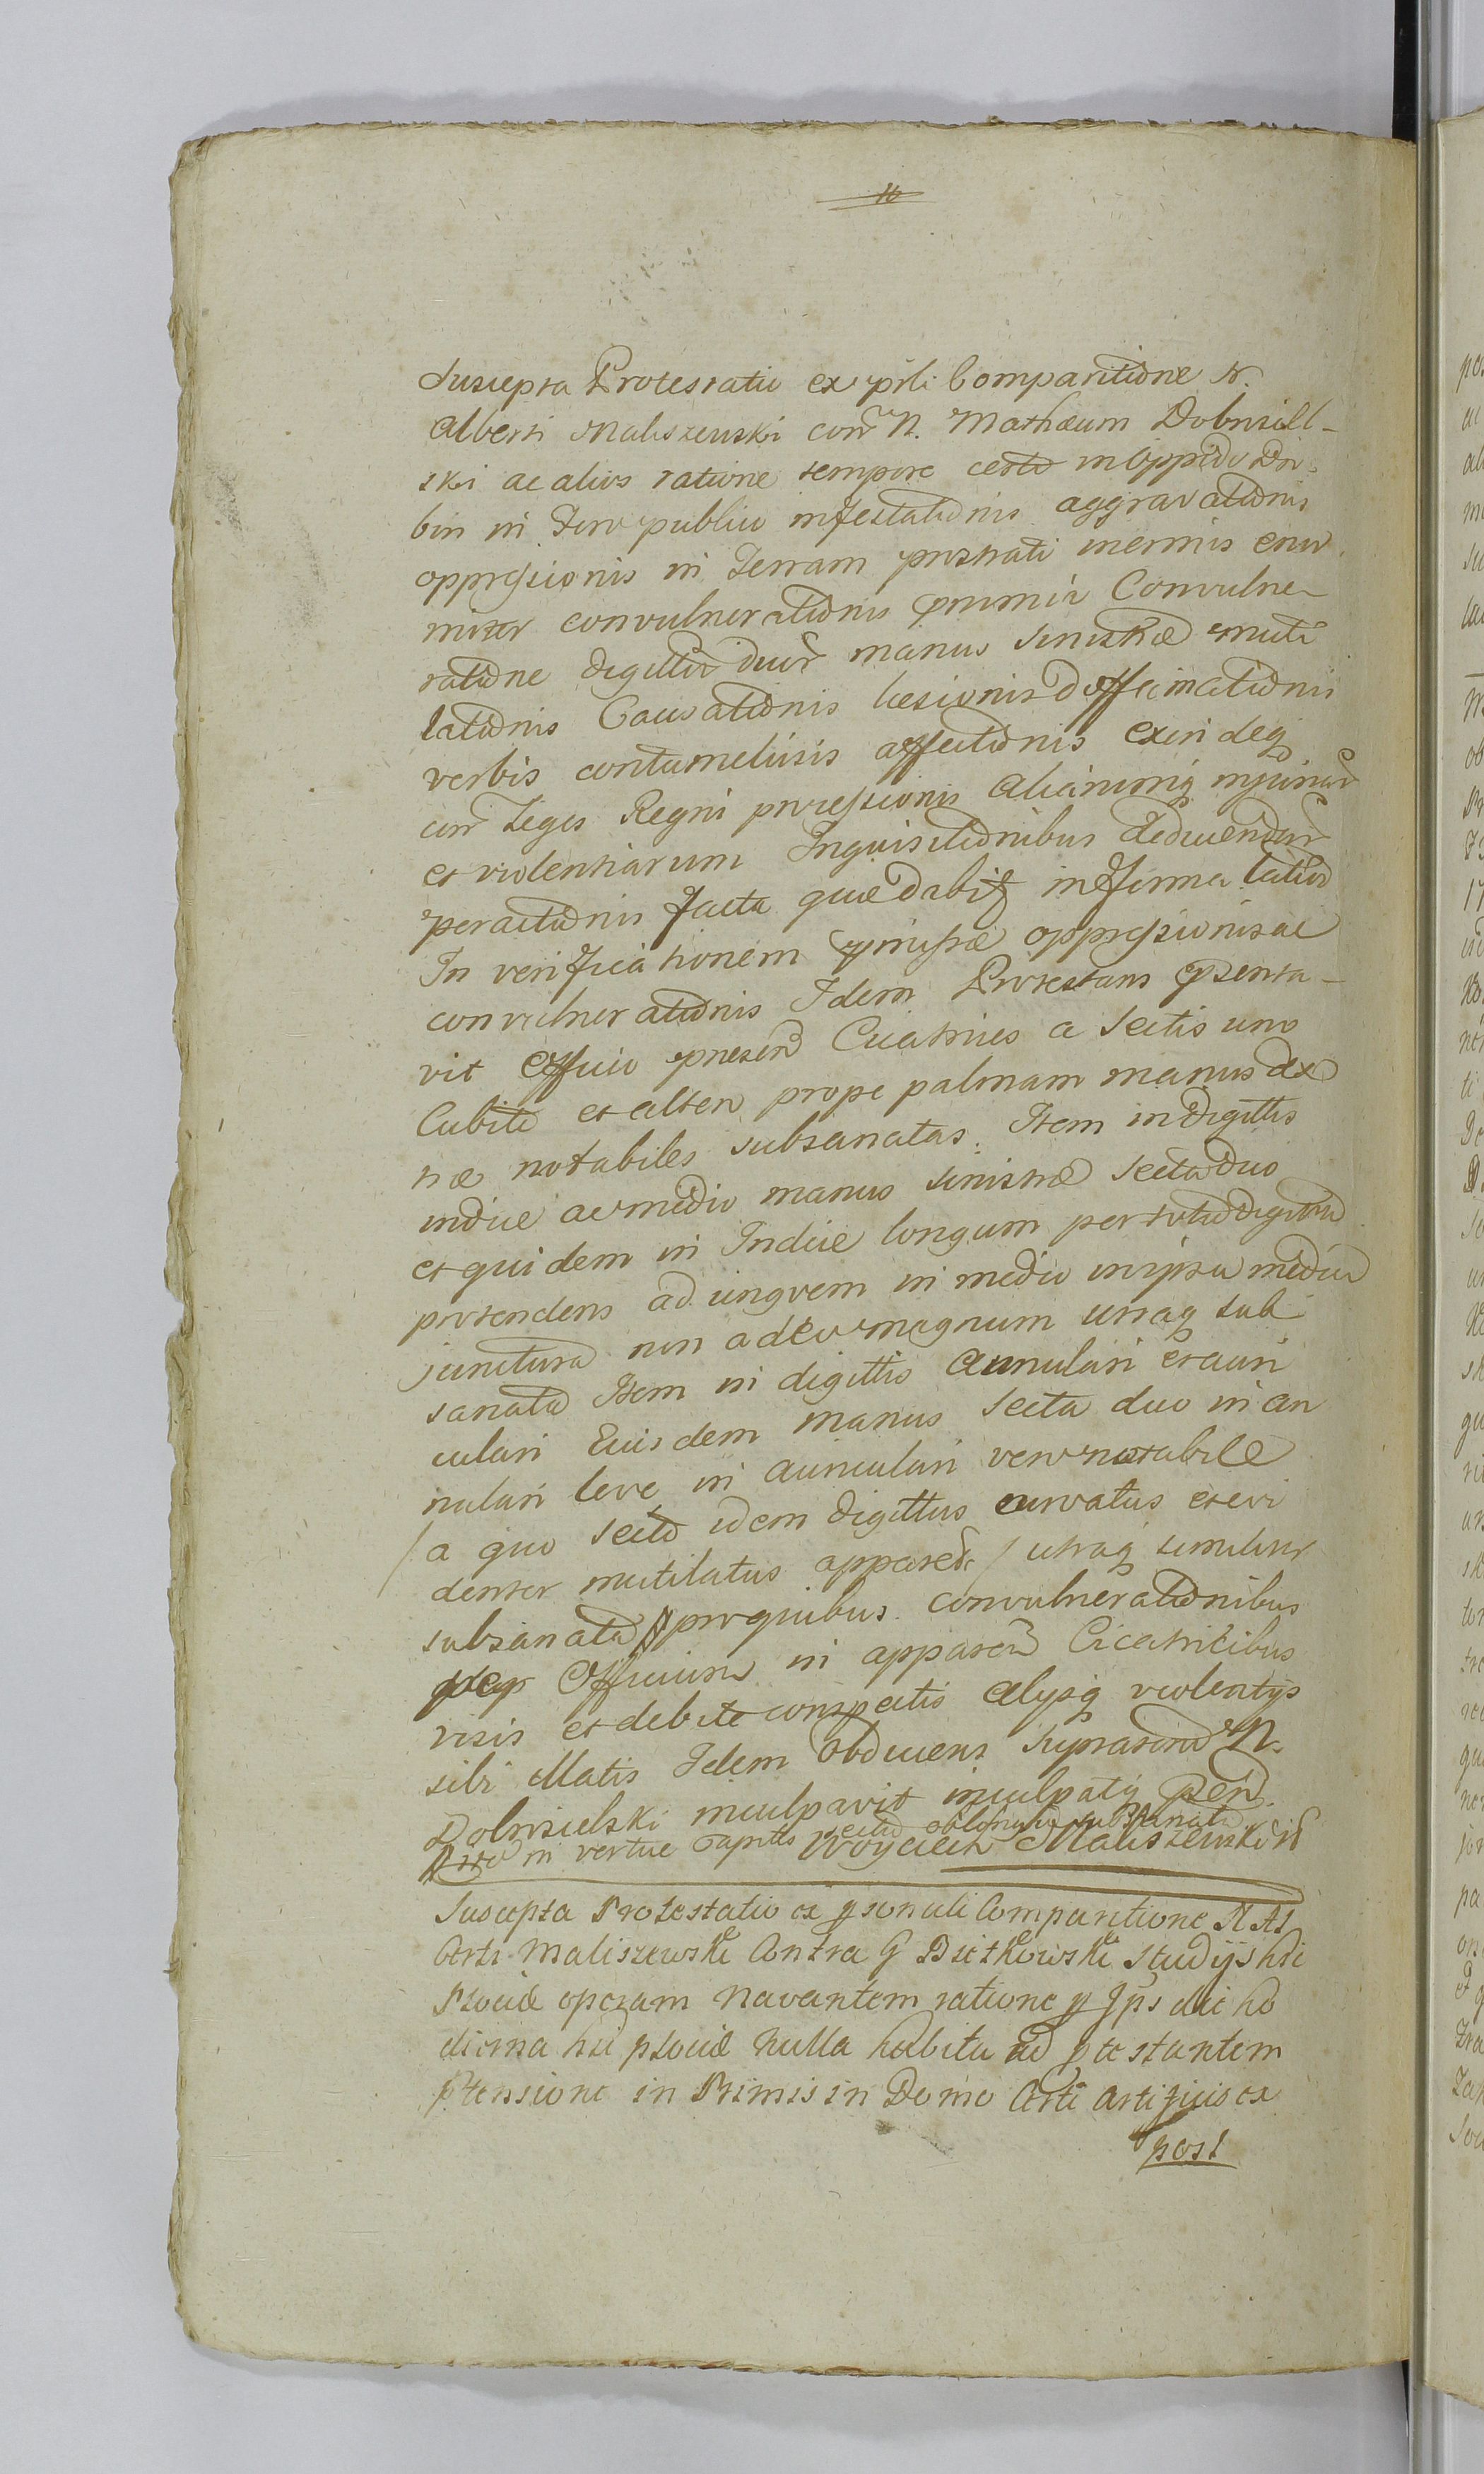 16
Suscepta Protestatio ex prli Comparitione N.
Alberti Maliszewski con N. Mathæum Dobrsiel-
ski ac alios ratione tempore certo in Oppido Dro-
bin in Foro publico infestationis aggravationis
oppressionis in Terram prostrati inermis enor
miter convulnerationis Convulne
ratione digittor duor manus sinistræ muti
lationis Causationis læsionis deffamationis
verbis contumeliosis affectionis exindeq
con Leges Regni processionis aliarumq injuriar
et violentiarum Inquisitionibus deducendar
peractionis facta quæ dabit in forma latior
In verificationem præmissæ oppressionis ac
convulnerationis Idem Protestans psenta-
vit Officio presen Cicatrices a sectis uno
Cubito et altero prope palmam manus dex
træ notabiles subsanatas. Item in digittis
indice ac medio manus sinistræ secta duo
et quidem in Indice longum per totu digittu
protendens ad ungvem in medio in ipsa media
junctura non adeo magnum utraq sub
sanata Item in digittis annulari et auri
culari Eiusdem manus secta duo in an
nulari leve in auriculari vero notabile
/ a quo secto idem digittus curvatus et evi
denter mutilatus apparet / utraq similiter
subsanata pro quibus convulnerationibus
per Officium in apparen Cicatricibus
visis et debite conspectis alysq violentys
sibi illatis Idem Obducens suprascrip N.
Dobrsielski inculpavit inculpatq psen
in vertice capitis sectu oblongu subsanatu
Woyciech Maliszewski
Suscepta Protestatio ex psonali Comparitione N Al
berti Maliszewski Contra G Bsetkowski Studijs hic
Plociæ operam navantem ratione Ips die ho
dierna hic Plociæ nulla habita ad ptestantem
ptensione in Primis in Domo Arti Artificis ex
post